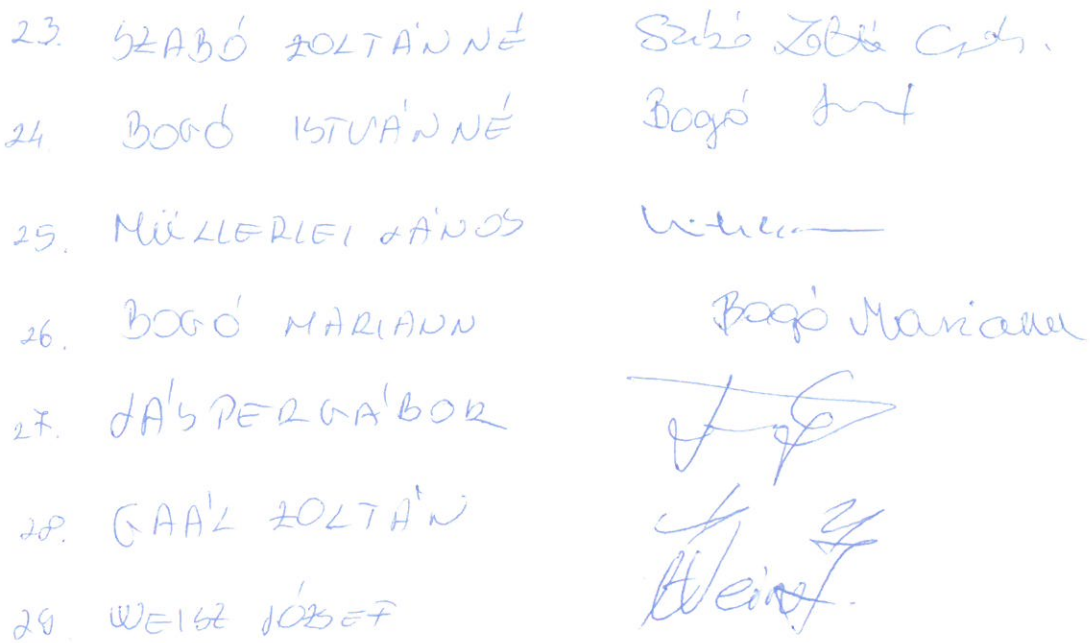 23. SZABÓ ZOLTÁNNÉ Szabó Zoltá
24. BOGÓ ISTVÁNNÉ Bogó
25. MÜLLERLEI JÁNOS
26. BOGÓ MARIANN Bogó Mariann
27. JÁSPER GÁBOR
28. GAÁL ZOLTÁN
29 WEISZ JÓZSEF Weisz J.